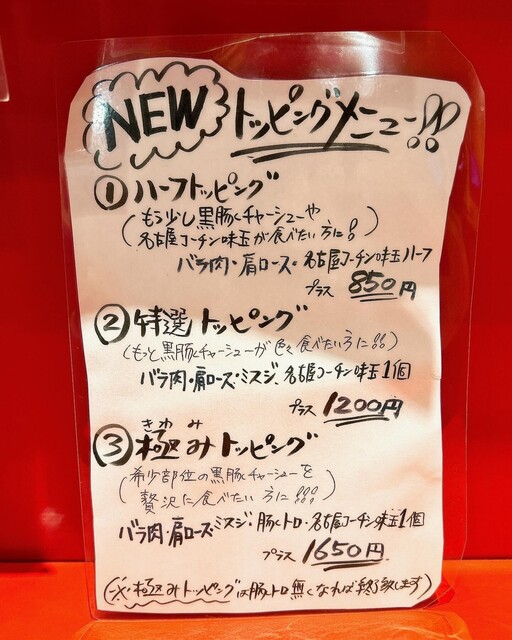 NEW トッピングメニュー!!
① ハーフトッピング
(もう少し黒豚チャーシューや
名古屋コーチン味玉が食べたい方に!)
バラ肉・肩ロース・名古屋コーチン味玉ハーフ
プラス 850円
② 特選トッピング
(もっと黒豚チャーシューが色々食べたい方に!!)
バラ肉・肩ロース・ミスジ・名古屋コーチン味玉1個
プラス 1200円
きわ み
③ 極みトッピング
(希少部位の黒豚チャーシューを
贅沢に食べたい方に!!!)
バラ肉・肩ロース・ミスジ・豚トロ・名古屋コーチン味玉1個
プラス 1650円
(※極みトッピングは豚トロ無くなれば終了致します)